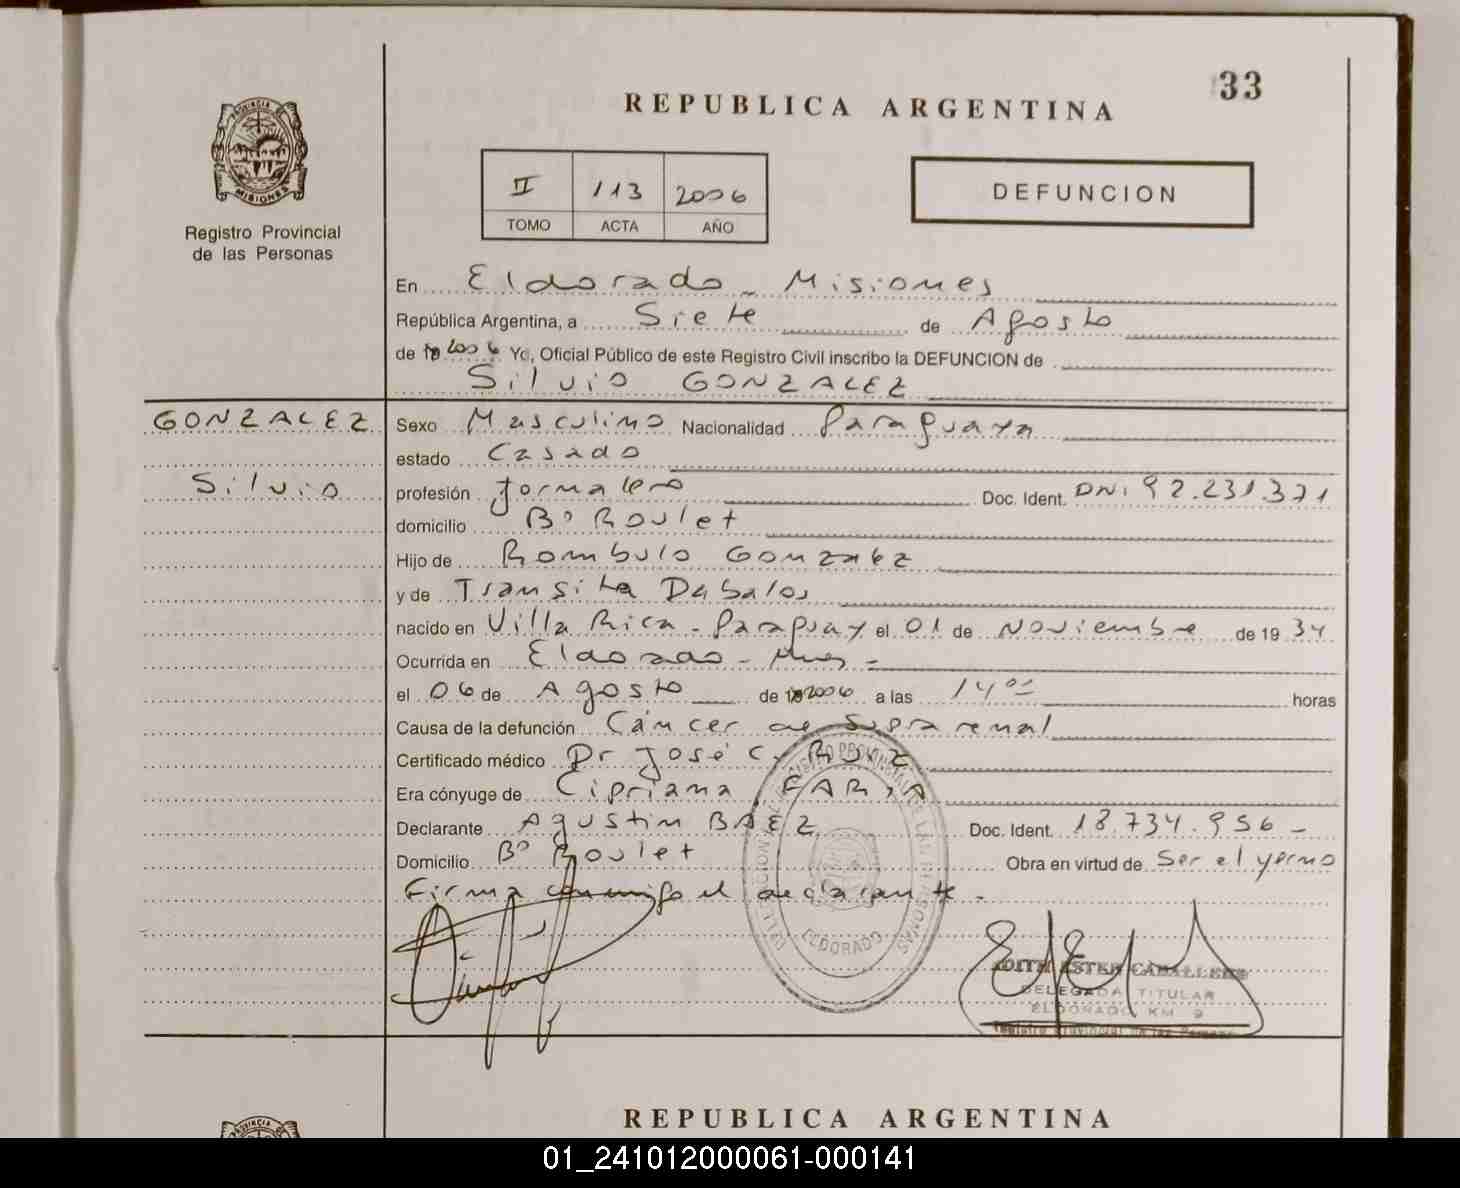 33
REPUBLICA ARGENTINA
PROVINCIA DE
MISIONES
Registro Provincial
de las Personas
II 113 2006
TOMO ACTA AÑO
DEFUNCION
En Eldorado - Misiones
República Argentina, a Siete de Agosto
de 19 2006 Yo, Oficial Público de este Registro Civil inscribo la DEFUNCION de
Silvio GONZALEZ
GONZALEZ
Silvio
Sexo Masculino Nacionalidad Paraguaya
estado Casado
profesión Jornalero Doc. Ident. DNI 92.231.371
domicilio Bº Roulet
Hijo de Rombulo Gonzalez
y de Transita Dabalos
nacido en Villa Rica - Paraguay el 01 de Noviembre de 19 34
Ocurrida en Eldorado - Mnes -
el 06 de Agosto de 19 2006 a las 14°° horas
Causa de la defunción Cáncer de Suprarenal
Certificado médico Dr José C. RUIZ
Era cónyuge de Cipriana FARIA
Declarante Agustin BAEZ Doc. Ident. 18.734.956 -
Domicilio Bº Roulet Obra en virtud de Ser el yerno
Firma conmigo el declarante -
ELDORADO
EDITH ESTER CABALLERO
DELEGADA TITULAR
ELDORADO KM 9
Registro Provincial de las Personas
REPUBLICA ARGENTINA
01_241012000061-000141